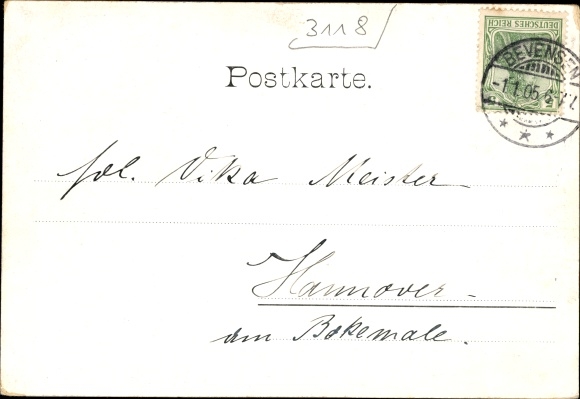 3118
DEUTSCHES REICH
BEVENSEN
-1.1.05.6-7
Postkarte.
Frl. Vika Meister
Hannover -
am Bokemale.